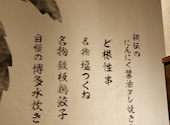 秘伝の
にんにく醤油ダレ炊き
ど根性串
名物 塩つくね
名物 鉄板鶏餃子
自慢の博多水炊き